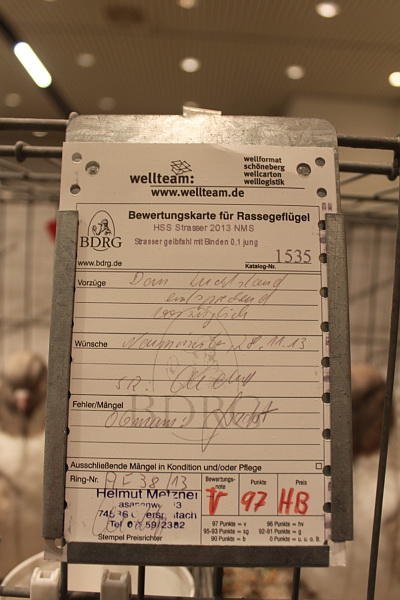 wellteam:
wellformat
schöneberg
wellcarton
welllogistik
www.wellteam.de
BDRG
www.bdrg.de
Bewertungskarte für Rassegeflügel
HSS Strasser 2013 NMS
Strasser gelbfahl mit Binden 0,1 jung
Katalog-Nr. 1535
Vorzüge Dem
entsprechend
vorzüglich
Wünsche Neumünster, 28.11.13
SR.
Fehler/Mängel
Obmann:
BDRG
Ausschließende Mängel in Kondition und/oder Pflege
Ring-Nr. AE 38/13
Helmut Metzner
Tel
Stempel Preisrichter
Bewertungs-
note
V
Punkte
97
Preis
HB
97 Punkte = v
96 Punkte = hv
95-93 Punkte = sg
92-91 Punkte = g
90 Punkte = b
0 Punkte = u. u. o. B.